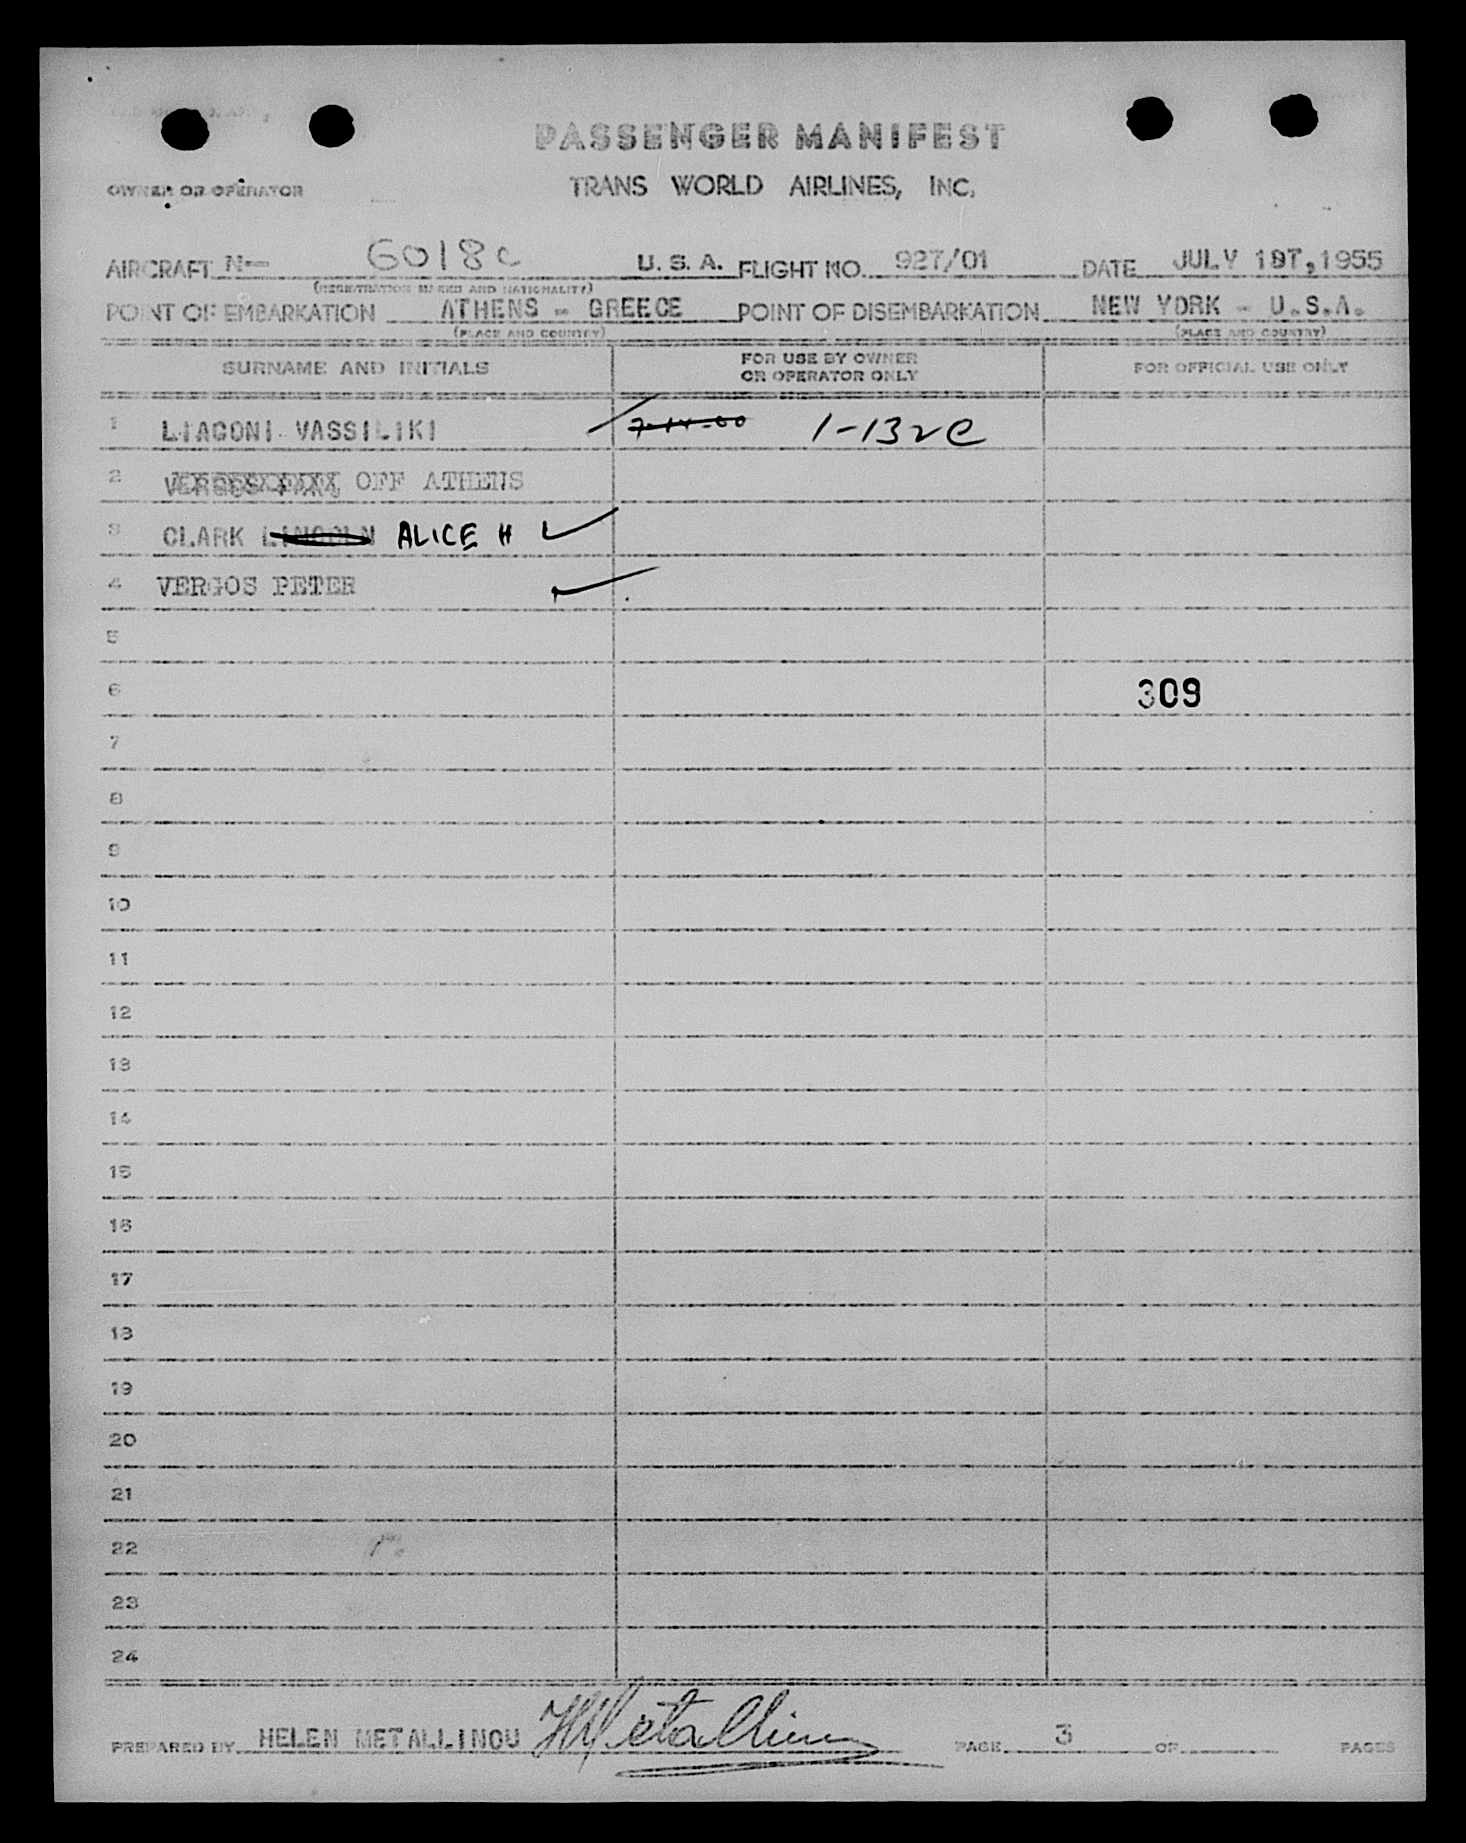 PASSENGER MANIFEST
OWNER OR OPERATOR TRANS WORLD AIRLINES, INC.
AIRCRAFT N- 6018C U. S. A. FLIGHT NO. 927/01 DATE JULY 1ST,1955
(REGISTRATION MARKS AND NATIONALITY)
POINT OF EMBARKATION ATHENS - GREECE POINT OF DISEMBARKATION NEW YORK - U.S.A.
(PLACE AND COUNTRY) (PLACE AND COUNTRY)
SURNAME AND INITIALS FOR USE BY OWNER OR OPERATOR ONLY FOR OFFICIAL USE ONLY
1 LIAGONI VASSILIKI 7-14-00 1-132C
2 OFF ATHENS
3 CLARK LINCOLN ALICE H
4 VERGOS PETER
5
6 309
7
8
9
10
11
12
13
14
15
16
17
18
19
20
21
22
23
24
PREPARED BY HELEN METALLINOU HMetallinou PAGE 3 OF PAGES